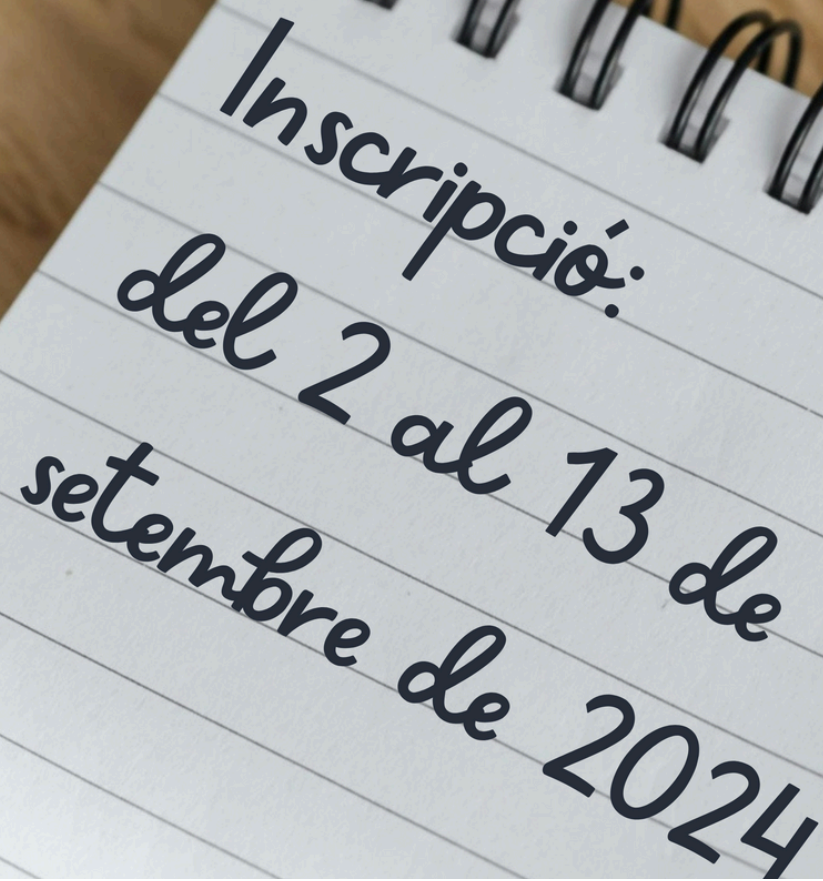 Inscripció:
del 2 al 13 de
setembre de 2024